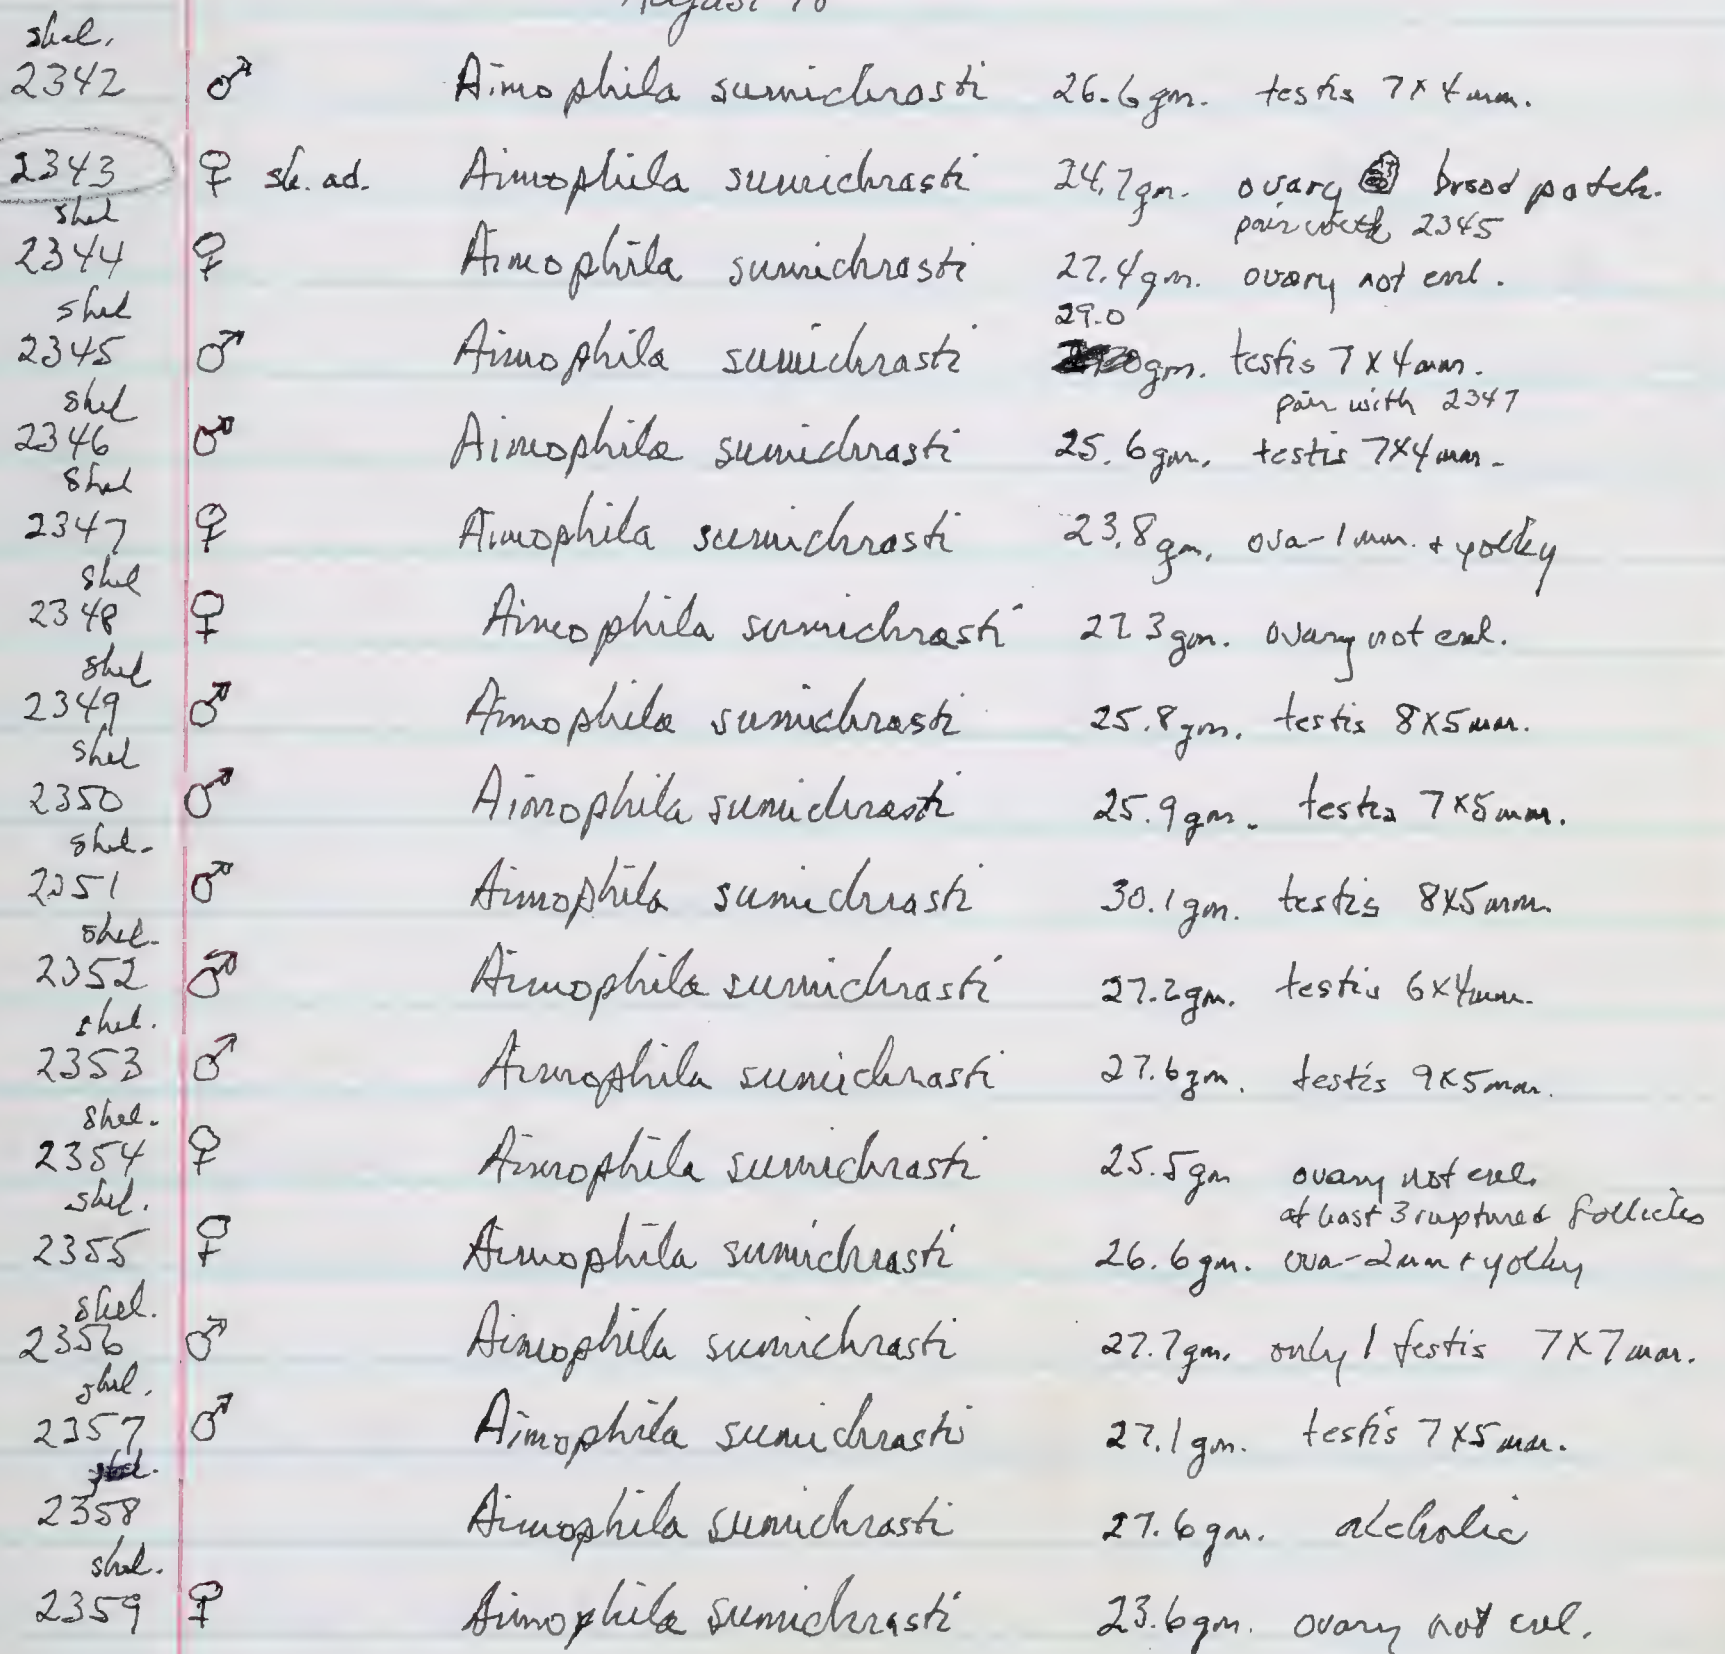 August 10
skel.
2342 ♂ Aimophila sumichrasti 26.6 gm. testis 7 x 4 mm.
2343 ♀ sk. ad. Aimophila sumichrasti 24.7 gm. ovary brood patch.
skel pair with 2345
2344 ♀ Aimophila sumichrasti 27.4 gm. ovary not enl.
skel 29.0
2345 ♂ Aimophila sumichrasti gm. testis 7 x 4 mm.
skel pair with 2347
2346 ♂ Aimophila sumichrasti 25.6 gm. testis 7x4 mm.
skel
2347 ♀ Aimophila sumichrasti 23.8 gm. ova-1 mm. + yolky
skel
2348 ♀ Aimophila sumichrasti 27.3 gm. ovary not enl.
skel
2349 ♂ Aimophila sumichrasti 25.8 gm. testis 8x5 mm.
skel
2350 ♂ Aimophila sumichrasti 25.9 gm. testis 7x5 mm.
skel.
2351 ♂ Aimophila sumichrasti 30.1 gm. testis 8x5 mm.
skel.
2352 ♂ Aimophila sumichrasti 27.2 gm. testis 6x4 mm.
skel.
2353 ♂ Aimophila sumichrasti 27.6 gm. testis 9x5 mm.
skel.
2354 ♀ Aimophila sumichrasti 25.5 gm ovary not enl.
skel. at least 3 ruptured follicles
2355 ♀ Aimophila sumichrasti 26.6 gm. ova-2 mm + yolky
skel.
2356 ♂ Aimophila sumichrasti 27.7 gm. only 1 testis 7x7 mm.
skel.
2357 ♂ Aimophila sumichrasti 27.1 gm. testis 7x5 mm.
skel.
2358 Aimophila sumichrasti 27.6 gm. alcholic
skel.
2359 ♀ Aimophila sumichrasti 23.6 gm. ovary not enl.